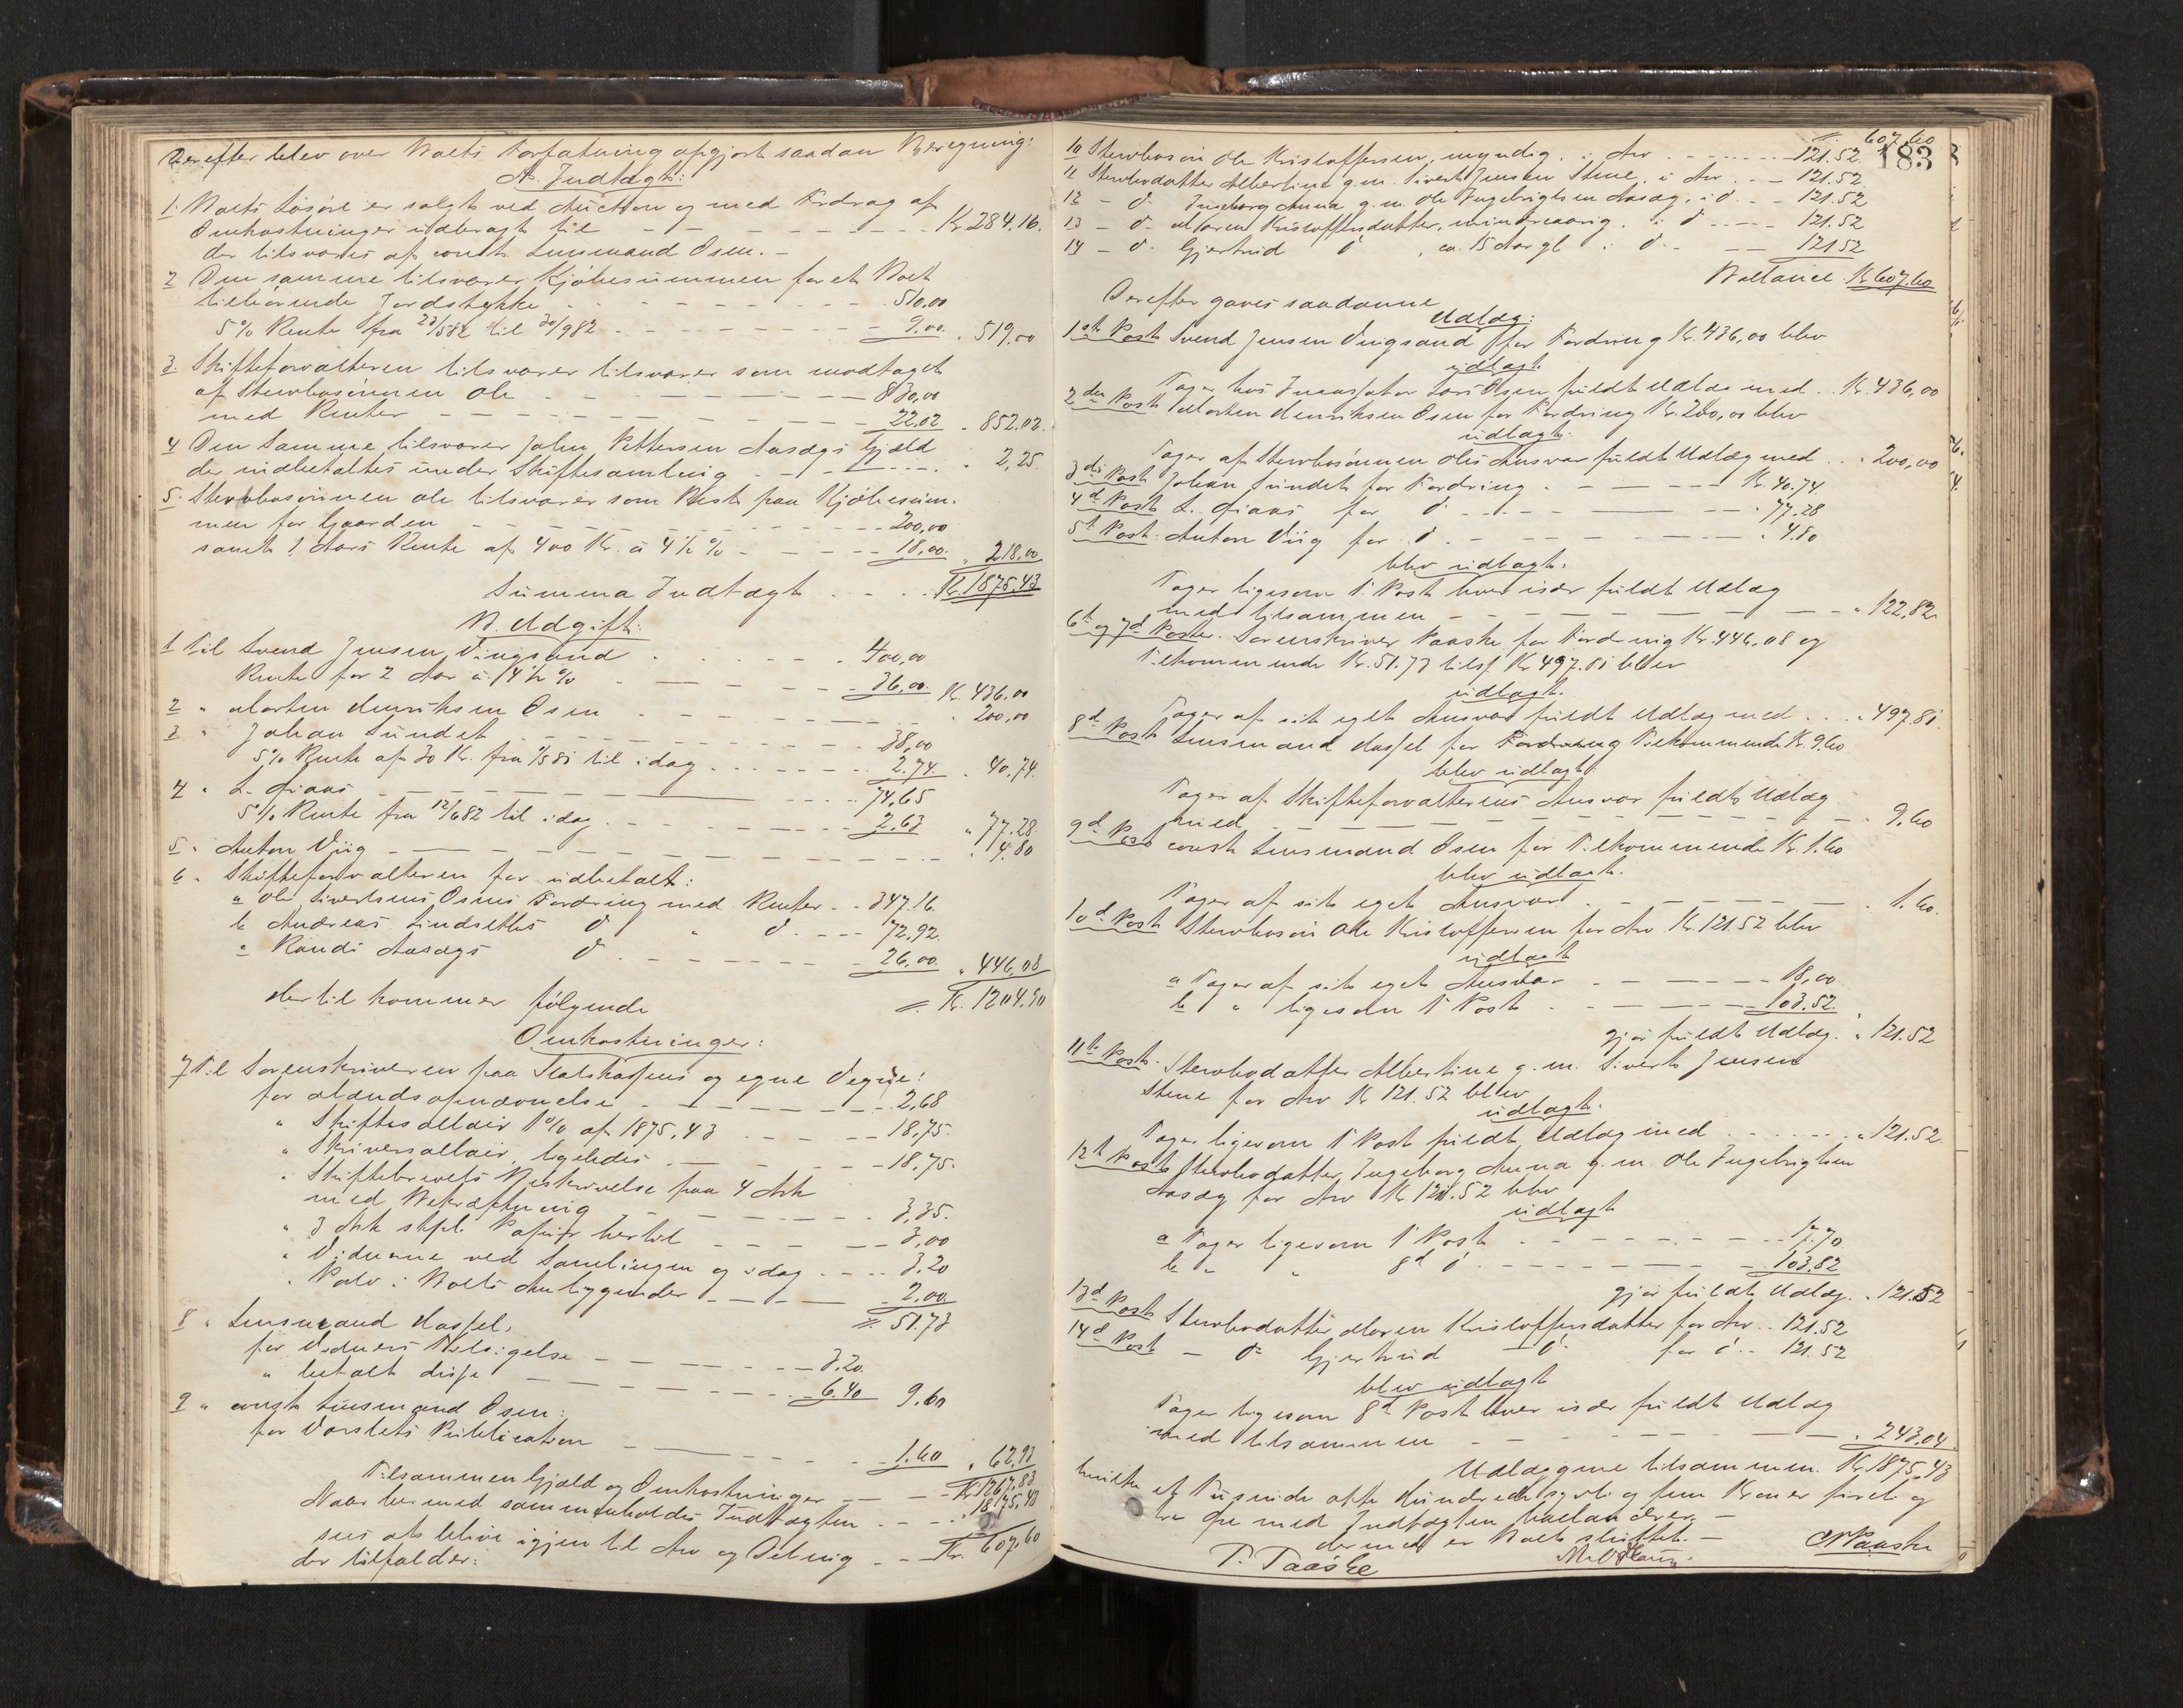 Derefter blev over Boets Forfatning opgjort saadan Beregning:
A. Indtægt:
1. Boets Løsøre er solgt ved Auction og med Fradrag af
Omkostninger udbragt til - - - - - - - Kr 284.16.
der tilsvares af const. Lensmand Osen. -
2 Den samme tilsvarer Kjøbesummen for et Boet
tilhørende Jordstykke - - - - - - - 510,00
5% Rente fra 23/582 til 30/982 - - - - - - 9.00 . 519,00
3. Skifteforvalteren tilsvarer tilsvarer som modtaget
af Stervbosønnen Ole - - - - - - - 830,00
med Renter - - - - - - - 22.02 . 852.02.
4 Den Samme tilsvarer John Pettersen Aasægs Gjæld
der indbetaltes under Skiftesamling - - - - - . 2,25.
5. Stervbosønnen Ole tilsvarer som Rest paa Kjøbesum-
men for Gaarden - - - - - - - 200,00
samt 1 Aars Rente af 400 Kr. à 4½ % - - - - 18,00. „ 218,00
Summa Indtægt . . . . Kr. 1875,43
B. Udgift:
1 Til Svend Jensen Vingsand . . . . . 400,00
Rente for 2 Aar à 4½ % - - - - 36,00. Kr. 436.00
2 „ Morten Henriksen Osen - - - - - - - . 200,00
3 „ Johan Sundet - - - - - - - 38,00
5% Rente af 30 Kr. fra 1/581 til idag . . . . . . 2.74. . 40,74.
4 „ L. Hians - - - - 74,65
5% Rente fra 12/682 til idag - - - - - - 2.63 „ 77.28.
5 „ Anton Viig - - - - - - - . 4,80
6 „ Skifteforvalteren for udbetalt:
a Ole Sivertsens Osens Fordring med Renter - - 347.16.
b Andreas Lindsettes do „ do - - - 72.92.
c Randi Aasægs do . - - - - - - 26,00. „ 446,08
dertil kommer følgende = Kr. 1204.90
Omkostninger:
7 Til Sorenskriveren paa Statskassens og egne Vegne:
for Mandsopnævnelse - - - - - - - 2,68
„ Skiftesallair 1% af 1875,43 - - - - - 18,75.
„ Skriversallair ligeledes - - - - - 18,75.
„ Skiftebrevets Beskrivelse paa 4 Ark
med Bekræftning - - - - - - - 3,35.
„ 3 Ark stpl. Papir hertil - - - - - 3,00
„ Vidnerne ved Samlingen og idag - - - - 3.20
„ Porto i Boets Anliggender - - - - - 2.00
= 51.73
8 „ Lensmand Hassel,
for Vidners Tilsigelse - - - - - - 3.20.
„ betalt disse - - - - - - - 6.40 9.60
9 „ const Lensmand Osen:
for Varslets Publication - - - - - - - 1.60 „ 62,93
Tilsammen Gjæld og Omkostninger - - - Kr. 1267.83
Naar hermed sammenholdes Indtægten - - - . 1875,43
sees at blive igjen til Arv og Deling - - Kr. 607,60
der tilfalder:
Tr. 607,60
183
10 Stervbosøn Ole Kristoffersen, myndig, i Arv - - - - - - 121.52.
11 Stervbodatter Albertine g.m. Sivert Jensen Stene, i Arv - - - 121.52
12 - do Ingeborg Anna g.m. Ole Ingebrigtsen Aasæg, i do - - - 121.52
13 - do Maren Kristoffersdatter, mindreaarig, i do - - - - - 121.52
14 - do Gjertrud do , ca. 15 Aar gl. i do - - - - 121.52
Ballance Kr. 607.60
Derefter gaves saadanne
Udlæg:
1ste Post Svend Jensen Vingsand for Fordring Kr. 436,00 blev
udlagt.
Tager hos Lars Olsen fuldt Udlæg med . Kr. 436,00
2den Post Morten Henriksen Osen for Fordring Kr. 200,00 blev
udlagt.
Tager af Stervbosønnen Oles Ansvar fuldt Udlæg med . . „ 200,00
3die Post Johan Sundet for Fordring - - - - Kr. 40.74.
4d Post L. Hians for do - - - - - - . 77.28
5te Post. Anton Viig for do . - - - - - - - „ 4.80
blev udlagt.
Tager ligesom 1' Post hver især fuldt Udlæg
med tilsammen - - - - - - - - „ 122,82.
6te og 7d Poster. Sorenskriver Paaske for Fordring Kr. 446,08 og
Tilkommende Kr. 51.73 tils. Kr 497.81 blev
udlagt.
Tager af sit eget Ansvar fuldt Udlæg med . . . „ 497.81.
8d Post Lensmand Hassel for Fordring Tilkommende Kr. 9.60
blev udlagt.
Tager af Skifteforvalterens Ansvar fuldt Udlæg
med - - - - - - - - - - - - 9,60
9d Post const Lensmand Osen for Tilkommende Kr. 1.60
blev udlagt.
Tager af sit eget Ansvar - - - - - - - . 1.60.
10d Post Stervbosøn Ole Kristoffersen for Arv Kr. 121.52 blev
udlagt
a Tager af sit eget Ansvar - - - - - - 18,00
b „ ligesom 1' Post - - - - - - 103.52.
gjør fuldt Udlæg. „ 121.52
11te Post. Stervbodatter Albertine g.m. Sivert Jensen
Stene for Arv Kr 121.52 blev
udlagt.
Tager ligesom 1' Post fuldt Udlæg med . . . . . . . „ 121.52.
12te Post Stervbodatter Ingeborg Anna g.m. Ole Ingebrigtsen
Aasæg for Arv Kr. 121.52 blev
udlagt
a Tager ligesom 1' Post - - - - - - - - 17.70
b „ „ 8d do - - - - - - - - 103.82
gjør fuldt Udlæg. „ 121.52
13d Post Stervbodatter Maren Kristoffersdatter for Arv . . 121.52
14d Post - do Gjertrud - do for do . . 121.52
blev udlagt
Tager ligesom 8d Post hver især fuldt Udlæg
med tilsammen - - - - - - - - „ 243,04
Udlæggene tilsammen. Kr. 1875,43
hvilke et Tusinde otte Hundrede sytti og fem Kroner firti og
tre Øre med Indtægten ballancerer. -
dermed er Boet sluttet. -
P. Paaske
CN Paaske